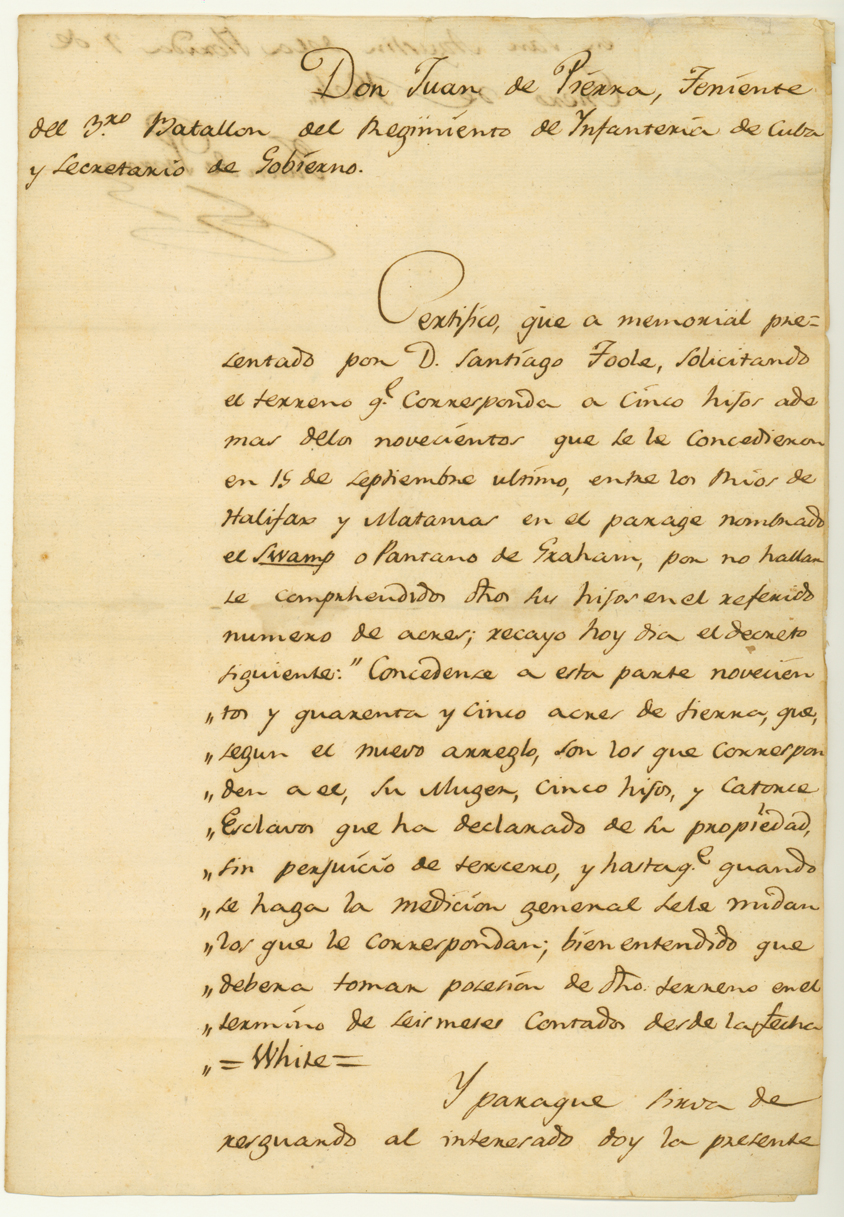 Don Juan de Pierra, Teniente
del 3.ro Batallon del Regimiento de Infanteria de Cuba
y Secretario de Gobierno.
Certifico, que a memorial pre=
sentado por D. Santiago Foole, solicitando
el terreno q.e Corresponda a Cinco hijos ade
mas delos novecientos que se le Concedieron
en 15 de Septiembre ultimo, entre los Rios de
Halifax y Matanzas en el parage nombrado
el Swamp o Pantano de Graham, por no hallar
se comprhendidos dhos sus hijos en el referido
numero de acres; recayo hoy dia el decreto
siguiente: "Concedense a esta parte novecien
"tos y quarenta y Cinco acres de tierra, que,
"segun el nuevo arreglo, son los que Correspon
"den a el, su Muger, Cinco hijos, y Catorce
"Esclavos que ha declarado de su propiedad,
"sin perjuicio de tercero, y hasta q.e quando
"se haga la medicion general sele midan
"los que le correspondan; bien entendido que
"debera tomar posesion de dho. terreno en el
"termino de seis meses Contados desde la fecha
"=White=
Y paraque sirva de
resguardo al interesado doy la presente